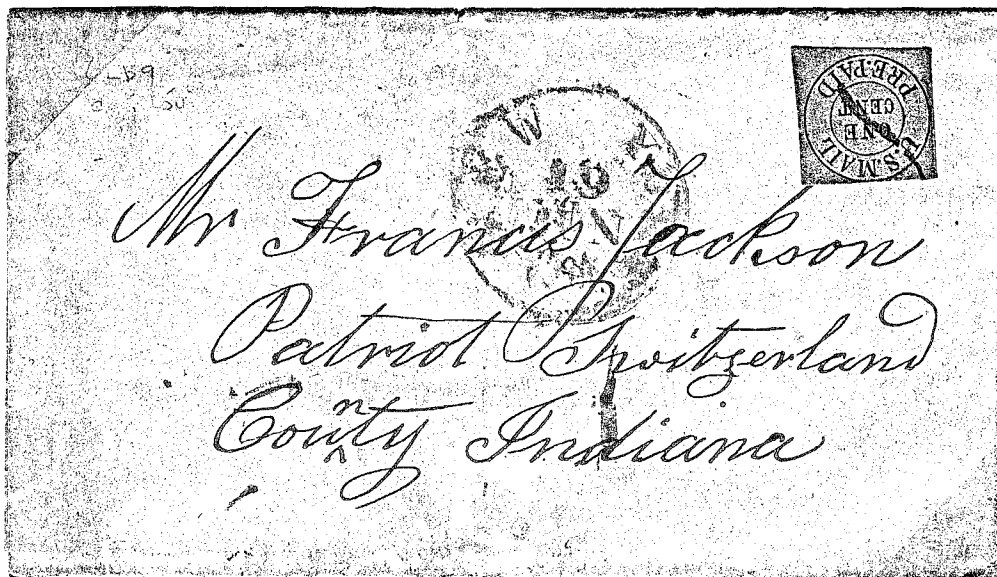 U.S.MAIL
PRE-PAID
ONE
CENT
NEW
10
Mr Francis Jackson
Patriot Switzerland
County Indiana